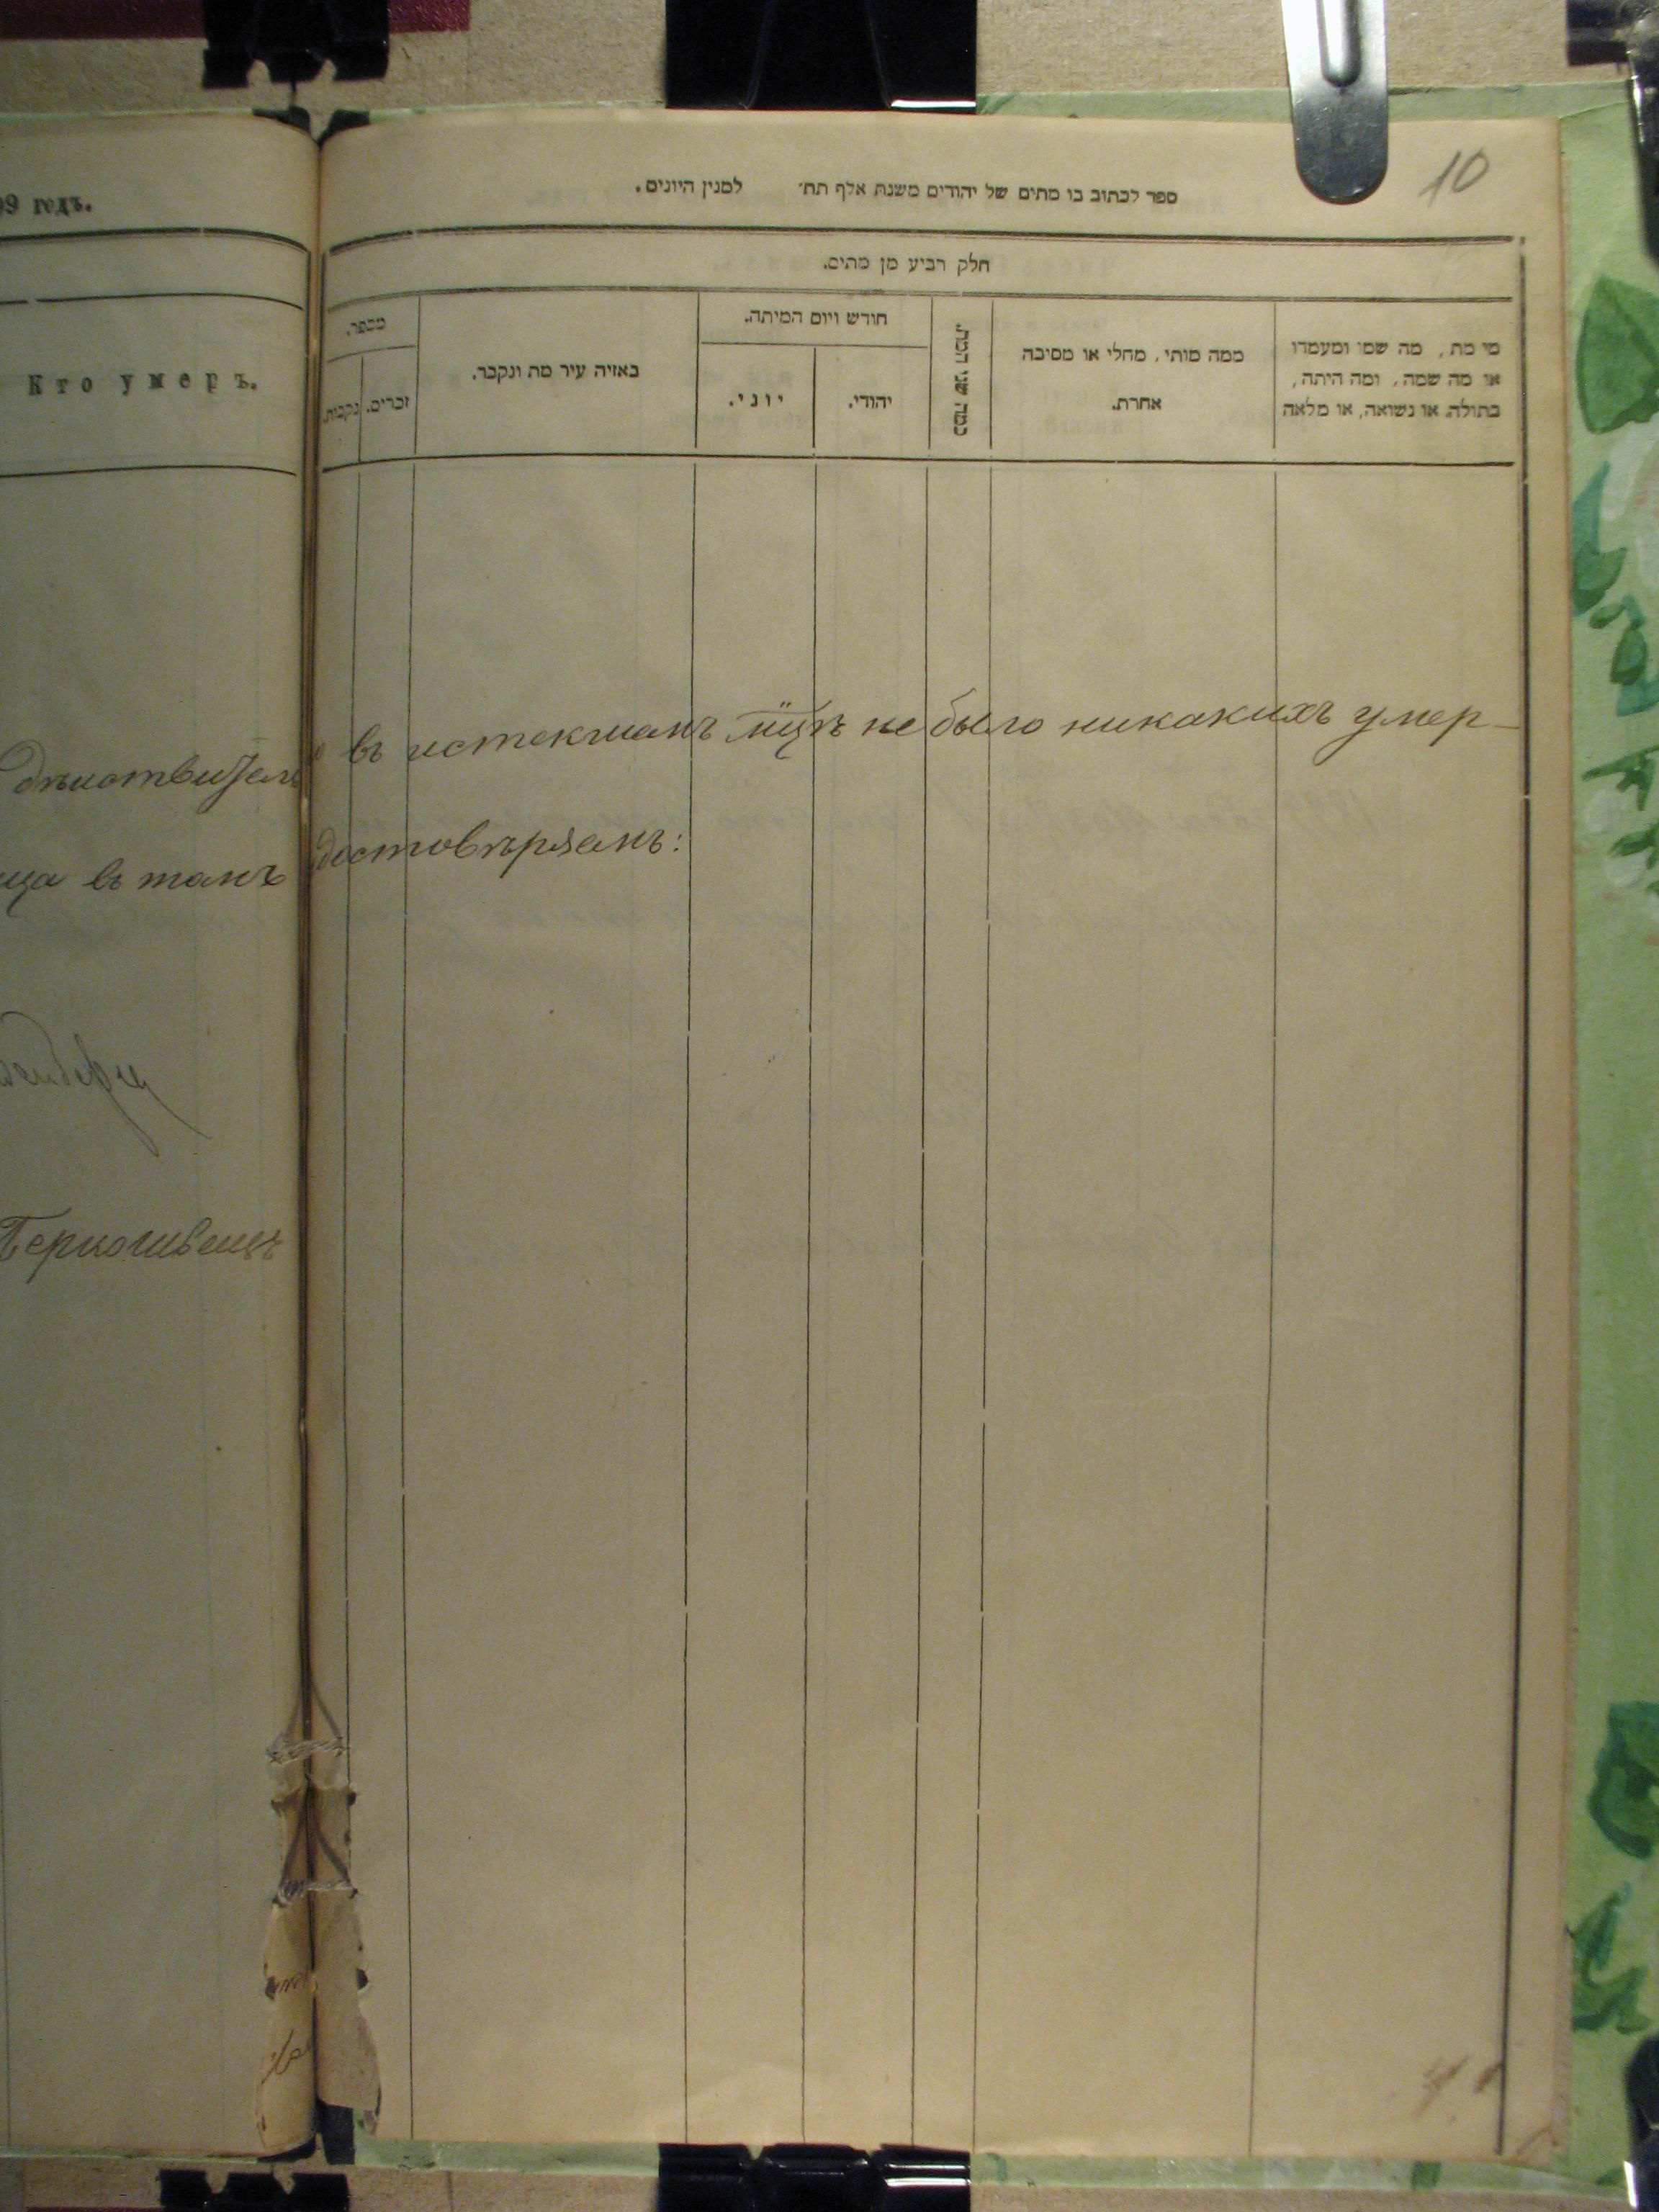 10
ספר לכתוב בו מתים של יהודים משנת אלף תת׳ למנין היונים.
חלק רביע מן מתים.
מי מת, מה שמו ומעמדו
או מה שמה, ומה היתה,
בתולה או נשואה, או מלאה
ממה מותי, מחלי או מסיבה
אחרת.
כמה שני המת.
חודש ויום המיתה.
יהודי.
יוני.
באזיה עיר מת ונקבר.
מספר.
זכרים.
נקבות.
9 годъ.
Кто умеръ.
въ истекшемъ мцѣ не было никакихъ умер-
достовѣряемъ:
въ томъ